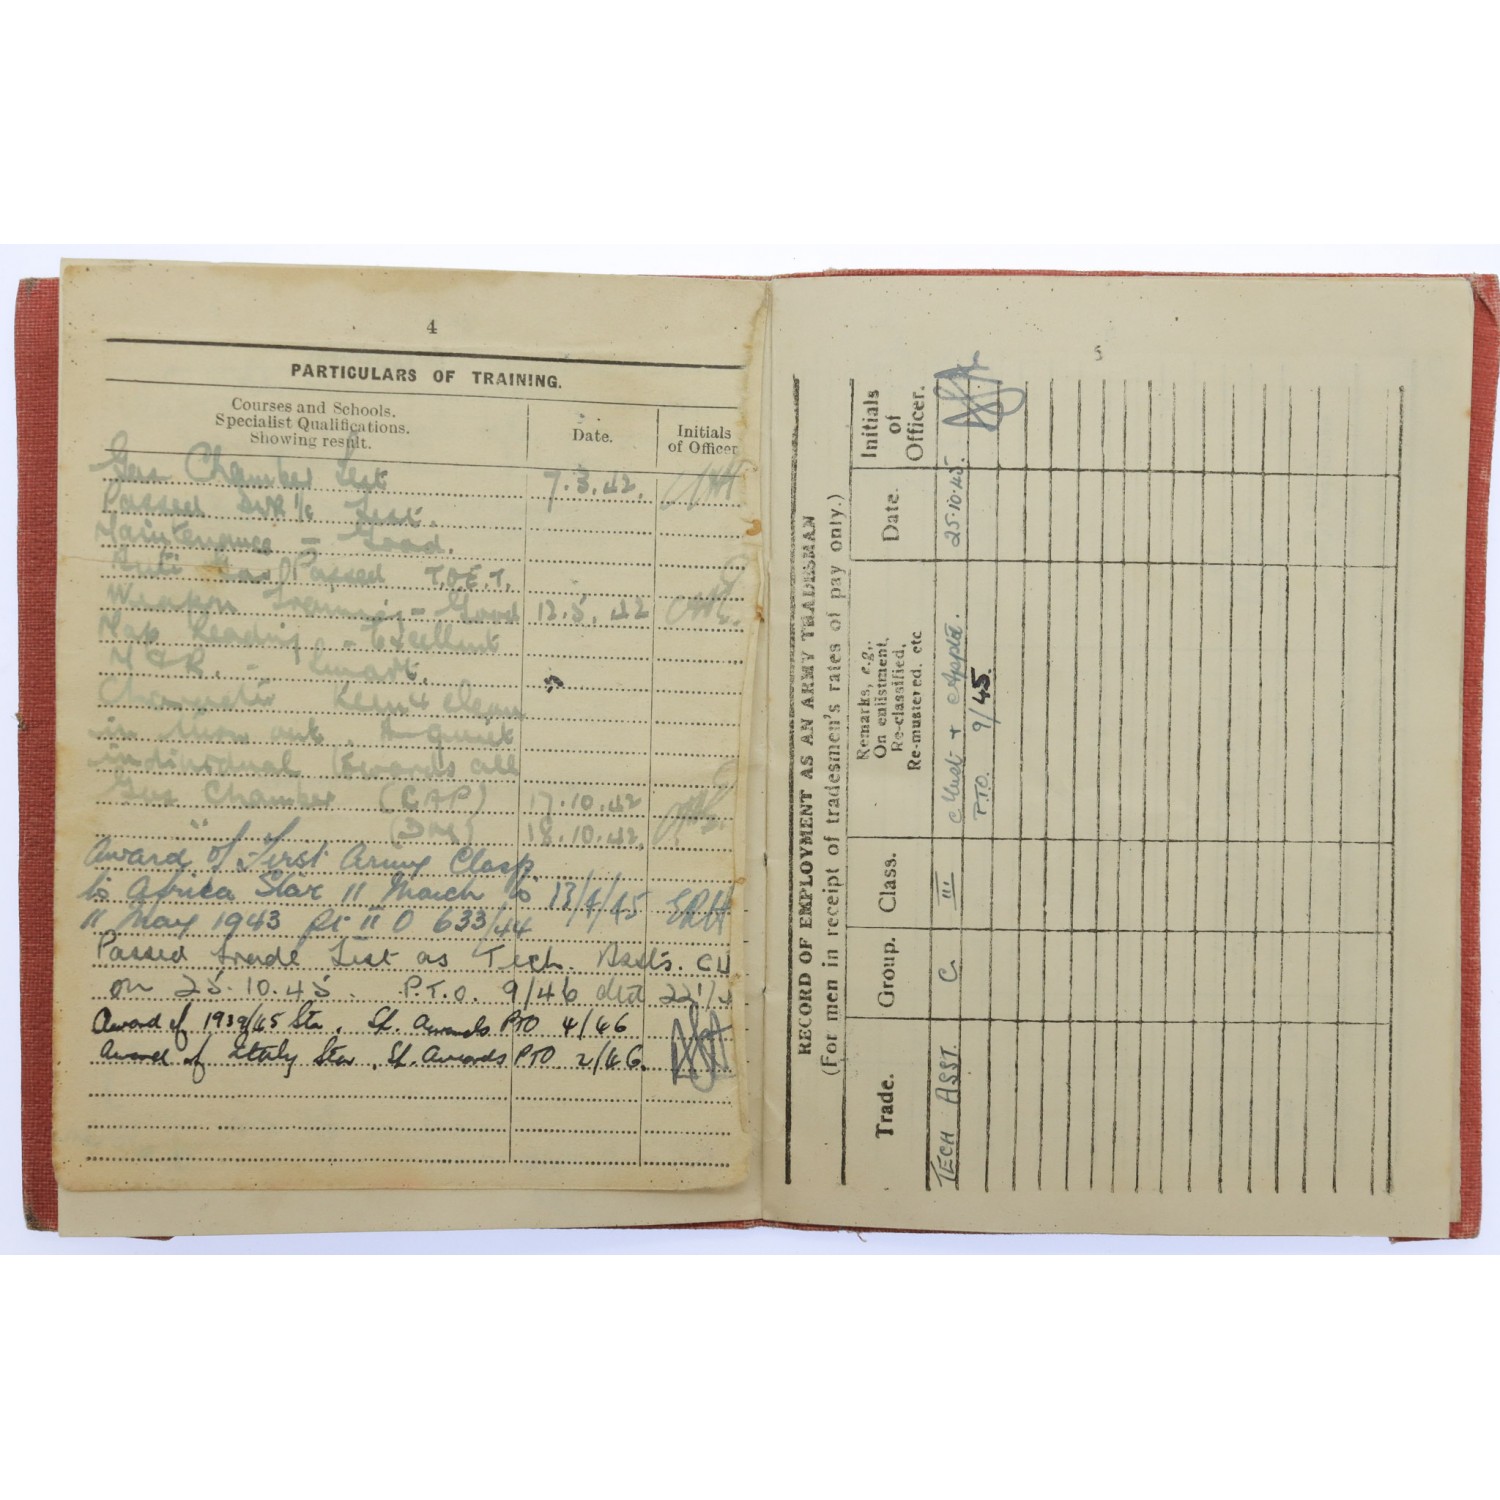 4
PARTICULARS OF TRAINING.
Courses and Schools.
Specialist Qualifications.
Showing result.
Date.
Initials
of Officer
Gas Chamber Test 7.3.42.
Passed DVR i/c Test.
Maintenance - Good.
Anti Gas Passed T.O.E.T.
Weapon Training - Good 12.5.42
Map Reading - Excellent
Smart.
Character Keen & clean
in turn out. A quiet
individual
Gas Chamber (CAP) 17.10.42
" (DM) 18.10.42.
Award of First Army Clasp
to Africa Star 11 March to 13/4/45 ERH
11 May 1943 Pt ii O 633/44
Passed Trade Test as Tech. Asst.
on 25.10.45. P.T.O. 9/46 dtd
Award of 1939/45 Star. Sf. Awards PTO 4/46
Award of Italy Star. Sf. Awards PTO 2/46.
5
RECORD OF EMPLOYMENT AS AN ARMY TRADESMAN
(For men in receipt of tradesmen's rates of pay only.)
Trade.
Group.
Class.
Remarks, e.g.,
On enlistment,
Re-classified,
Re-mustered, etc
Date.
Initials
of
Officer.
TECH ASST. C. III + Appld. 25.10.45.
P.T.O. 9/45.